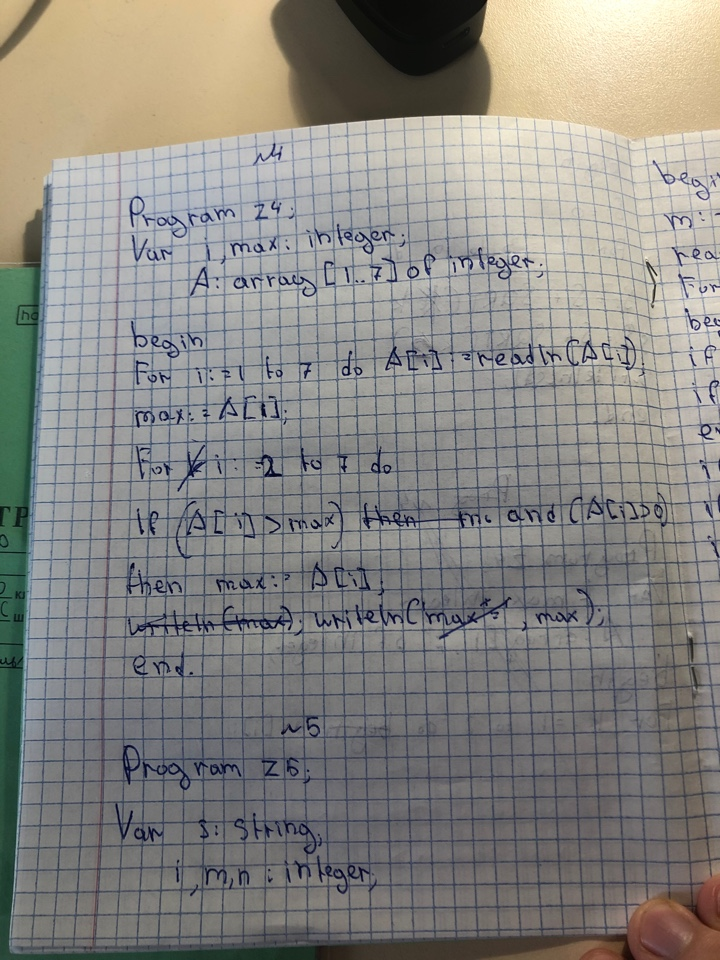 №4
Program z4;
Var i, max: integer;
A: array [1..7] of integer;
begin
For i:=1 to 7 do A[i]:=readln(A[i]);
max:=A[1];
For i:=2 to 7 do
If (A[i]>max) then m and (A[i]>0)
then max:= A[i];
writeln(max); writeln('max=', max);
end.
№5
Program z5;
Var s: string;
i, m, n: integer;
begi
m:
rea
For
beg
if
if
en
i